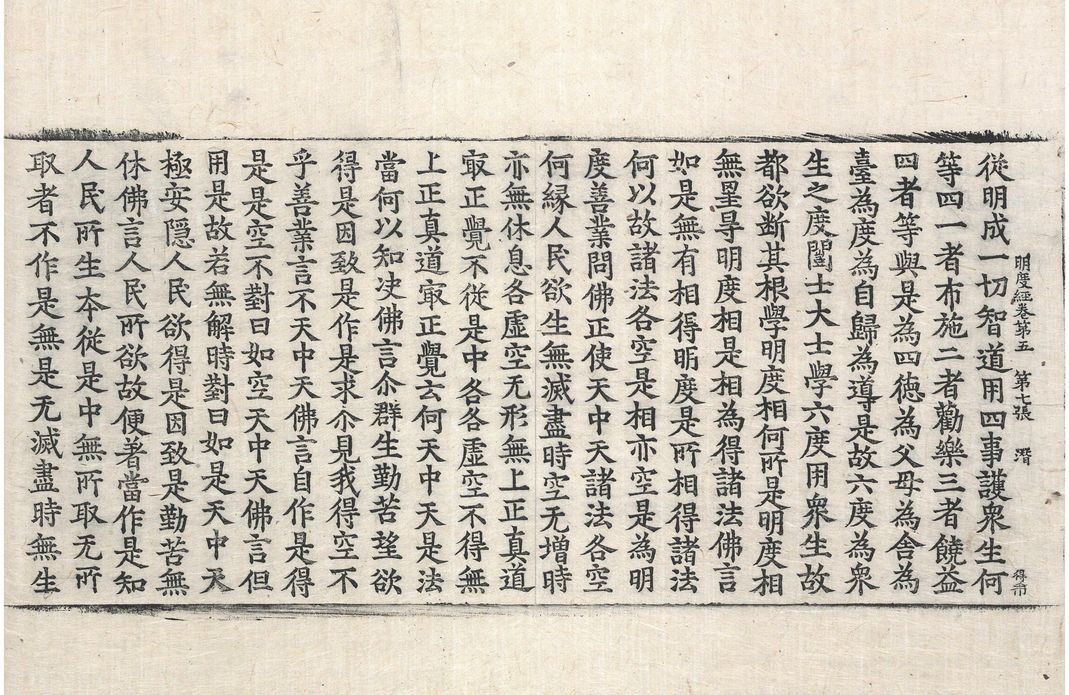 明度經卷第五 第七張 潛
從明成一切智道用四事護衆生何
等四一者布施二者勸樂三者饒益
四者等與是為四德為父母為舍為
臺為度為自歸為導是故六度為衆
生之度闓士大士學六度用衆生故
都欲断其根學明度相何所是明度相
無罣㝵明度相是相為得諸法佛言
如是無有相得明度是所相得諸法
何以故諸法各空是相亦空是為明
度善業問佛正使天中天諸法各空
何緣人民欲生無滅盡時空无增時
亦無休息各虛空无形無上正真道
㝡正覺不從是中各各虛空不得無
上正真道㝡正覺云何天中天是法
當何以知决佛言尒群生勤苦望欲
得是因致是作是求尒見我得空不
乎善業言不天中天佛言自作是得
是是空不對曰如空天中天佛言但
用是故若無解時對曰如是天中天
極安隱人民欲得是因致是勤苦無
休佛言人民所欲故便著當作是知
人民所生本從是中無所取无所
取者不作是無是无滅盡時無生